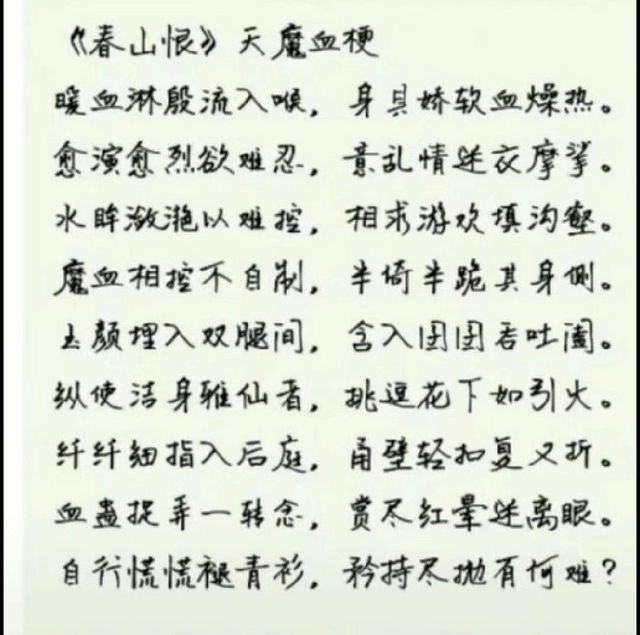 《春山恨》天魔血梗
暖血淋殷流入喉，身具娇软血燥热。
愈演愈烈欲难忍，意乱情迷衣摩挲。
水眸潋滟以难控，相求游欢填沟壑。
魔血相控不自制，半倚半跪其身侧。
玉颜埋入双腿间，含入团团吞吐阖。
纵使洁身雅仙者，挑逗花下如引火。
纤纤细指入后庭，甬壁轻扣复又折。
血蛊捉弄一转念，赏尽红晕迷离眼。
自行慌慌褪青衫，矜持尽抛有何难？